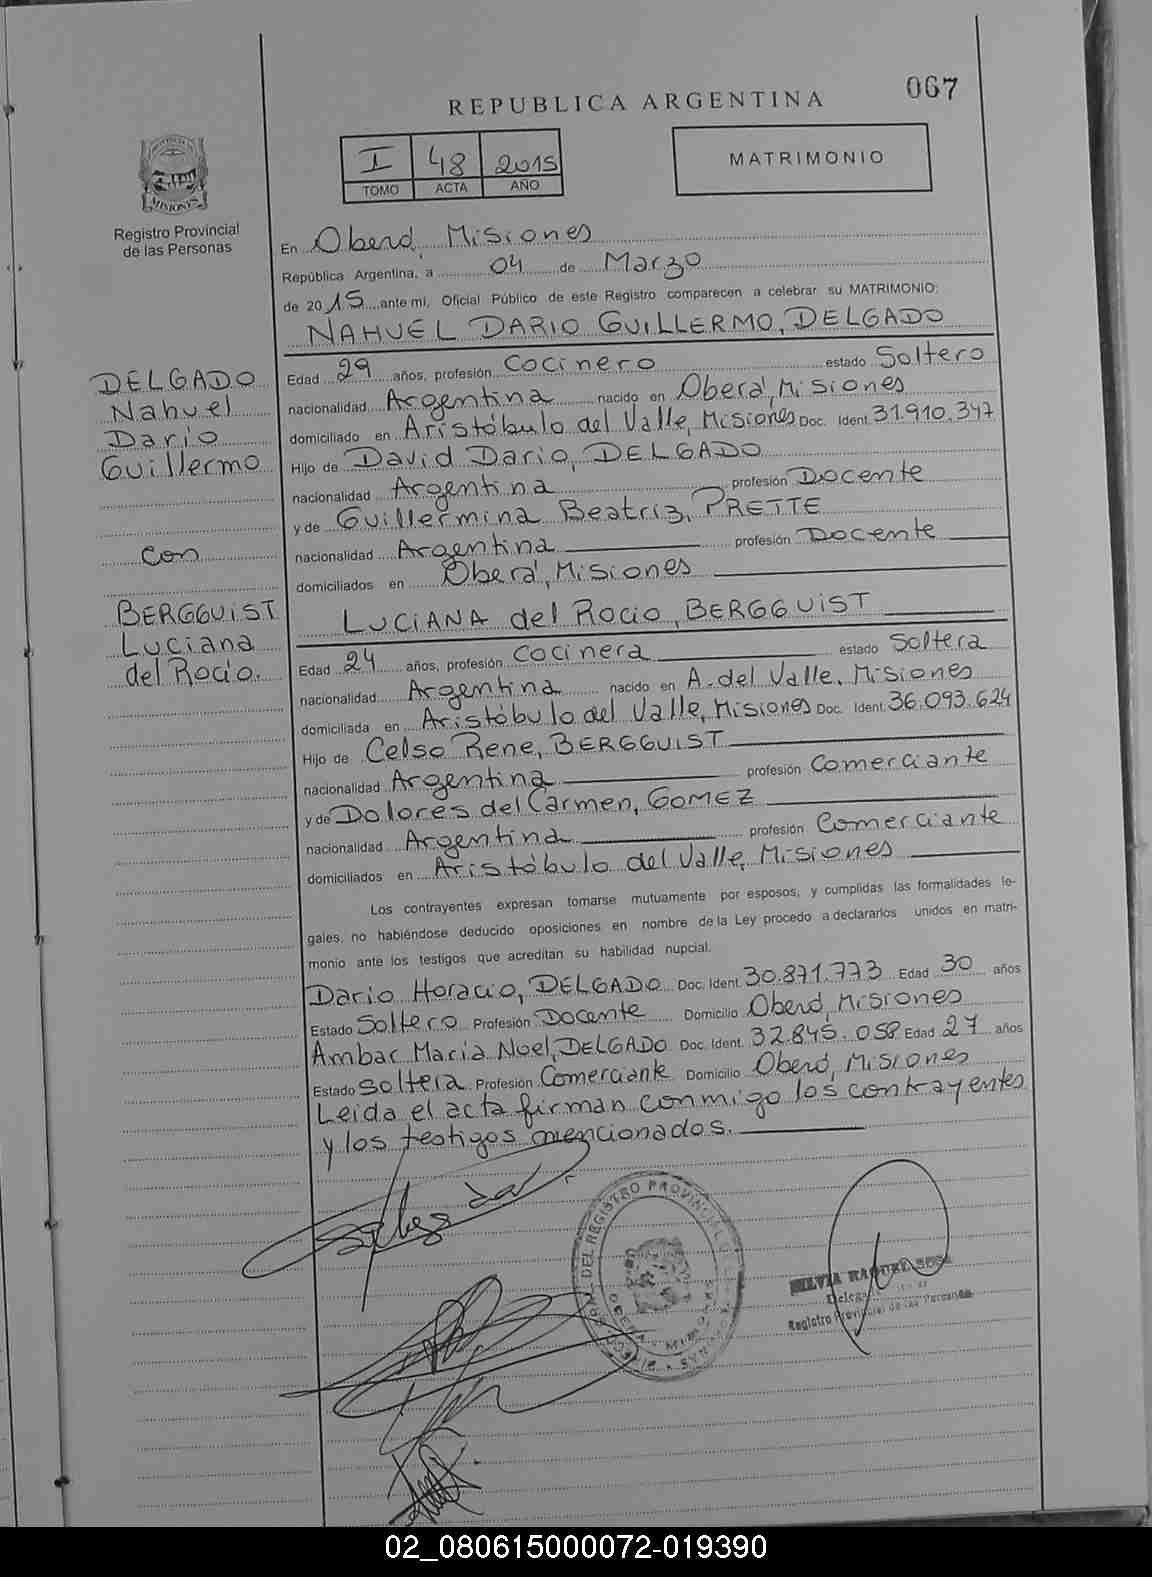 067
REPUBLICA ARGENTINA
MISIONES
Registro Provincial
de las Personas
I 48 2015
TOMO ACTA AÑO
MATRIMONIO
En Oberá, Misiones
República Argentina, a 04 de Marzo
de 2015 ante mi, Oficial Público de este Registro comparecen a celebrar su MATRIMONIO:
NAHUEL DARIO GUILLERMO, DELGADO
Edad 29 años, profesión Cocinero estado Soltero
nacionalidad Argentina nacido en Oberá, Misiones
domiciliado en Aristóbulo del Valle, Misiones Doc. Ident. 31.910.347
Hijo de David Dario, DELGADO
nacionalidad Argentina profesión Docente
y de Guillermina Beatriz, PRETTE
nacionalidad Argentina profesión Docente
domiciliados en Oberá, Misiones
DELGADO
Nahuel
Dario
Guillermo
con
BERGGUIST
Luciana
del Rocío.
LUCIANA del Rocio, BERGGUIST
Edad 24 años, profesión Cocinera estado Soltera
nacionalidad Argentina nacido en A. del Valle, Misiones
domiciliada en Aristóbulo del Valle, Misiones Doc. Ident. 36.093.624
Hijo de Celso Rene, BERGGUIST
nacionalidad Argentina profesión Comerciante
y de Dolores del Carmen, GOMEZ
nacionalidad Argentina profesión Comerciante
domiciliados en Aristóbulo del Valle, Misiones
Los contrayentes expresan tomarse mutuamente por esposos, y cumplidas las formalidades le-
gales, no habiéndose deducido oposiciones en nombre de la Ley procedo a declararlos unidos en matri-
monio ante los testigos que acreditan su habilidad nupcial.
Dario Horacio, DELGADO Doc. Ident. 30.871.773 Edad 30 años
Estado Soltero Profesión Docente Domicilio Oberá, Misiones
Ambar Maria Noel, DELGADO Doc. Ident. 32.845.058 Edad 27 años
Estado Soltera Profesión Comerciante Domicilio Oberá, Misiones
Leida el acta firman conmigo los contrayentes
y los testigos mencionados.
DEL REGISTRO PROVINCIAL DE
OBERA - MISIONES
SILVIA RAQUEL
Registro Provincial de las Personas
02_080615000072-019390